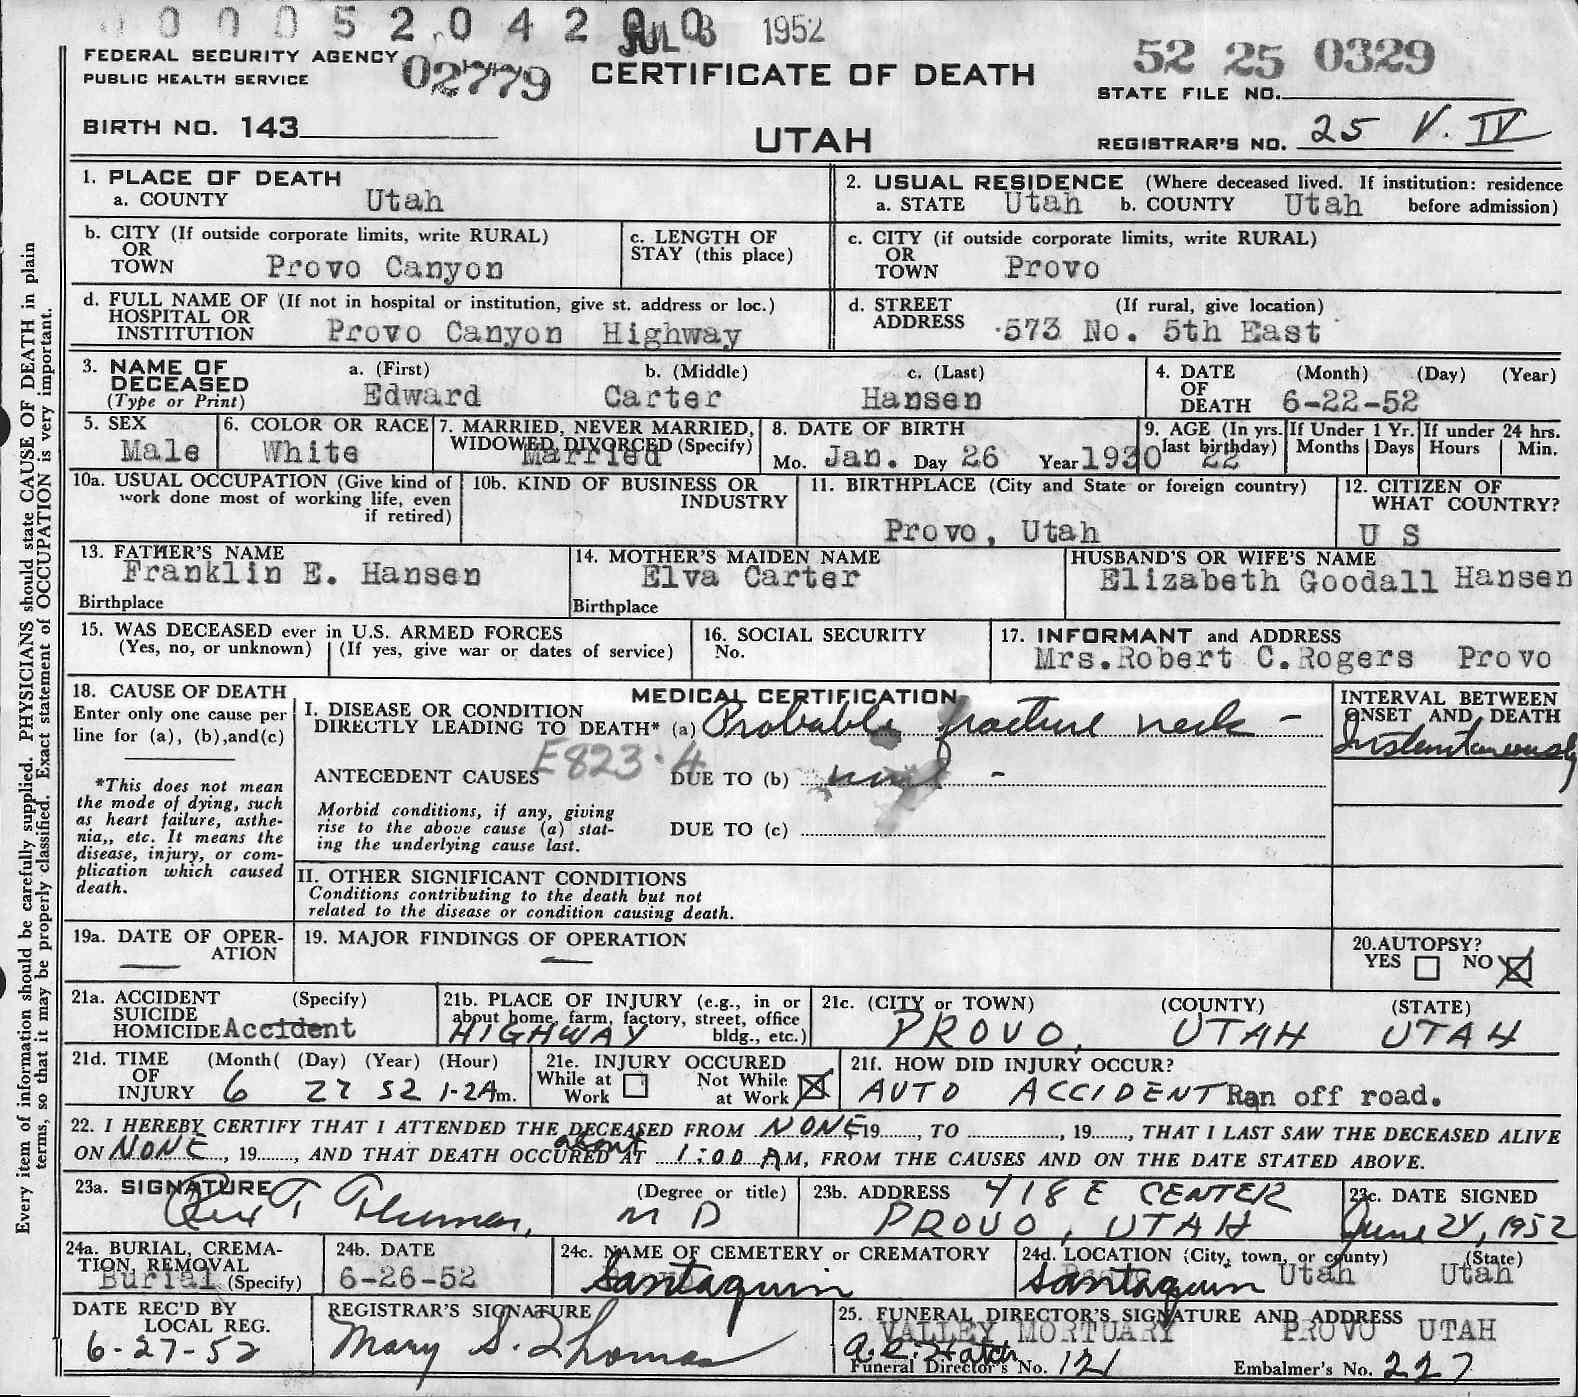 0 0 0 5 2 0 4 2 0 0 JUL 03 1952
FEDERAL SECURITY AGENCY
PUBLIC HEALTH SERVICE
02779
CERTIFICATE OF DEATH
52 25 0329
STATE FILE NO.
BIRTH NO. 143
UTAH
REGISTRAR'S NO. 25 V. IV
1. PLACE OF DEATH
a. COUNTY Utah
2. USUAL RESIDENCE (Where deceased lived. If institution: residence
a. STATE Utah b. COUNTY Utah before admission)
b. CITY (If outside corporate limits, write RURAL)
OR
TOWN Provo Canyon
c. LENGTH OF
STAY (this place)
c. CITY (if outside corporate limits, write RURAL)
OR
TOWN Provo
d. FULL NAME OF (If not in hospital or institution, give st. address or loc.)
HOSPITAL OR
INSTITUTION Provo Canyon Highway
d. STREET (If rural, give location)
ADDRESS 573 No. 5th East
3. NAME OF
DECEASED
(Type or Print)
a. (First) b. (Middle) c. (Last)
Edward Carter Hansen
4. DATE (Month) (Day) (Year)
OF
DEATH 6-22-52
5. SEX
Male
6. COLOR OR RACE
White
7. MARRIED, NEVER MARRIED,
WIDOWED, DIVORCED (Specify)
Married
8. DATE OF BIRTH
Mo. Jan. Day 26 Year 1930
9. AGE (In yrs.
last birthday)
22
If Under 1 Yr.
Months Days
If under 24 hrs.
Hours Min.
10a. USUAL OCCUPATION (Give kind of
work done most of working life, even
if retired)
10b. KIND OF BUSINESS OR
INDUSTRY
11. BIRTHPLACE (City and State or foreign country)
Provo, Utah
12. CITIZEN OF
WHAT COUNTRY?
U S
13. FATHER'S NAME
Franklin E. Hansen
Birthplace
14. MOTHER'S MAIDEN NAME
Elva Carter
Birthplace
HUSBAND'S OR WIFE'S NAME
Elizabeth Goodall Hansen
15. WAS DECEASED ever in U.S. ARMED FORCES
(Yes, no, or unknown) (If yes, give war or dates of service)
16. SOCIAL SECURITY
No.
17. INFORMANT and ADDRESS
Mrs.Robert C.Rogers Provo
18. CAUSE OF DEATH
Enter only one cause per
line for (a), (b),and(c)
*This does not mean
the mode of dying, such
as heart failure, asthe-
nia,, etc. It means the
disease, injury, or com-
plication which caused
death.
MEDICAL CERTIFICATION
I. DISEASE OR CONDITION
DIRECTLY LEADING TO DEATH* (a) Probable fracture neck -
E823.4
ANTECEDENT CAUSES DUE TO (b) -
Morbid conditions, if any, giving
rise to the above cause (a) stat-
ing the underlying cause last.
DUE TO (c)
II. OTHER SIGNIFICANT CONDITIONS
Conditions contributing to the death but not
related to the disease or condition causing death.
INTERVAL BETWEEN
ONSET AND DEATH
Instantaneously
19a. DATE OF OPER-
ATION
—
19. MAJOR FINDINGS OF OPERATION
—
20.AUTOPSY?
YES NO X
21a. ACCIDENT (Specify)
SUICIDE
HOMICIDE Accident
21b. PLACE OF INJURY (e.g., in or
about home, farm, factory, street, office
bldg., etc.)
HIGHWAY
21c. (CITY or TOWN) (COUNTY) (STATE)
PROVO, UTAH UTAH
21d. TIME (Month( (Day) (Year) (Hour)
OF
INJURY 6 22 52 1-2Am.
21e. INJURY OCCURED
While at
Work
Not While
at Work X
21f. HOW DID INJURY OCCUR?
AUTO ACCIDENT Ran off road.
22. I HEREBY CERTIFY THAT I ATTENDED THE DECEASED FROM NONE 19......., TO ..............., 19......., THAT I LAST SAW THE DECEASED ALIVE
ON NONE, 19......., AND THAT DEATH OCCURED about AT 1:00 AM, FROM THE CAUSES AND ON THE DATE STATED ABOVE.
23a. SIGNATURE (Degree or title)
Rex T M D
23b. ADDRESS 418 E CENTER
PROVO, UTAH
23c. DATE SIGNED
June 24, 1952
24a. BURIAL, CREMA-
TION, REMOVAL
Burial (Specify)
24b. DATE
6-26-52
24c. NAME OF CEMETERY or CREMATORY
Santaquin
24d. LOCATION (City, town, or county) (State)
Santaquin Utah Utah
DATE REC'D BY
LOCAL REG.
6-27-52
REGISTRAR'S SIGNATURE
Mary S. Thomas
25. FUNERAL DIRECTOR'S SIGNATURE AND ADDRESS
VALLEY MORTUARY PROVO UTAH
Hatch
Funeral Director's No. 121 Embalmer's No. 227
Every item of information should be carefully supplied. PHYSICIANS should state CAUSE OF DEATH in plain
terms, so that it may be properly classified. Exact statement of OCCUPATION is very important.